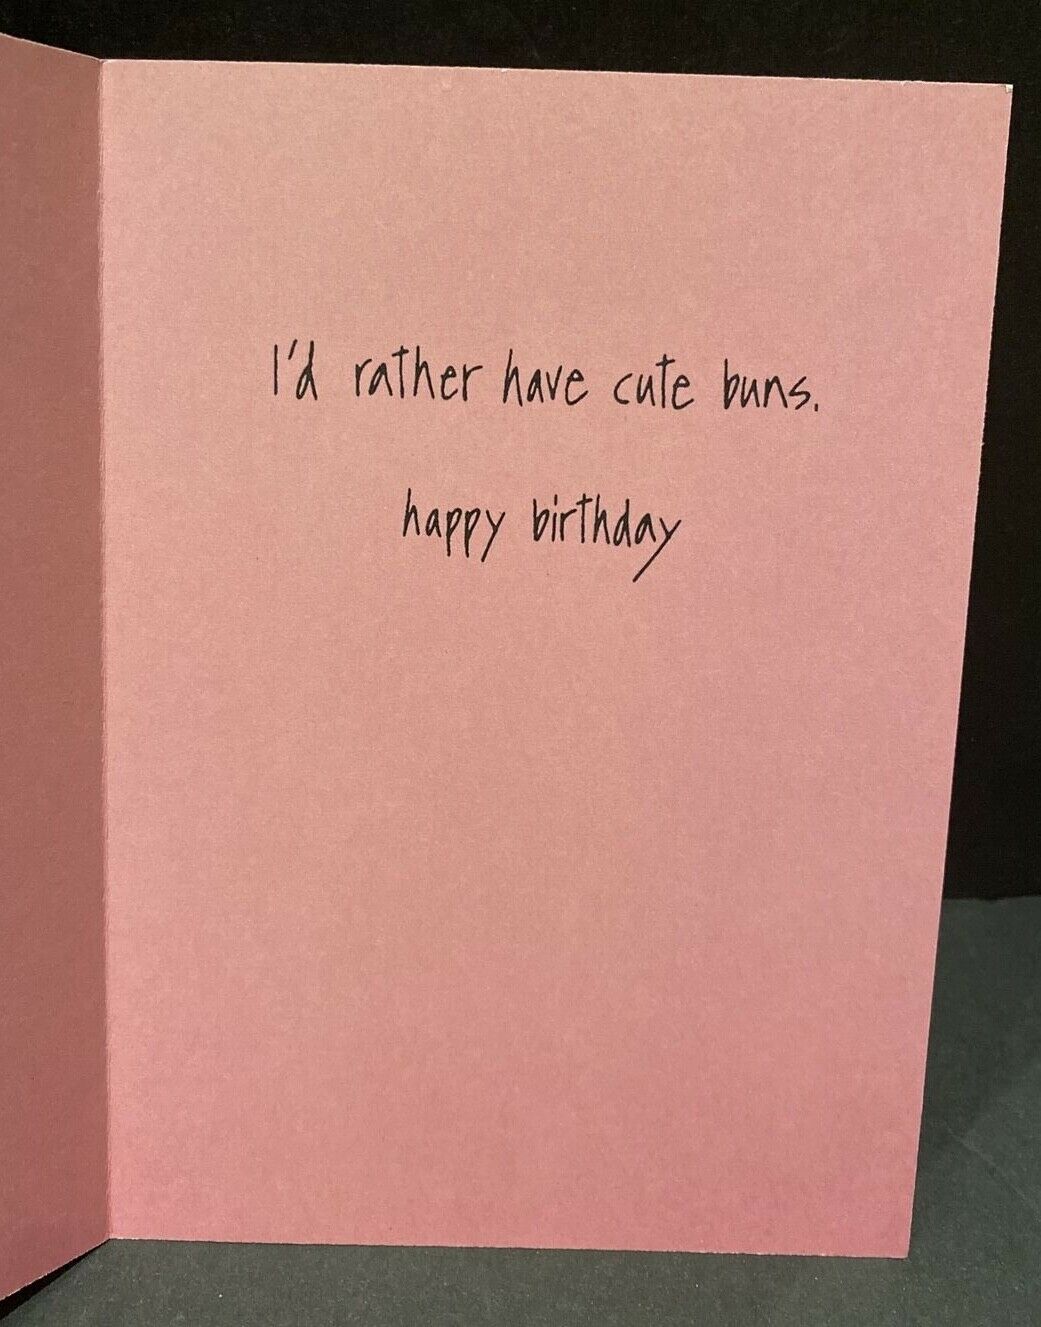 I'd rather have cute buns.
happy birthday